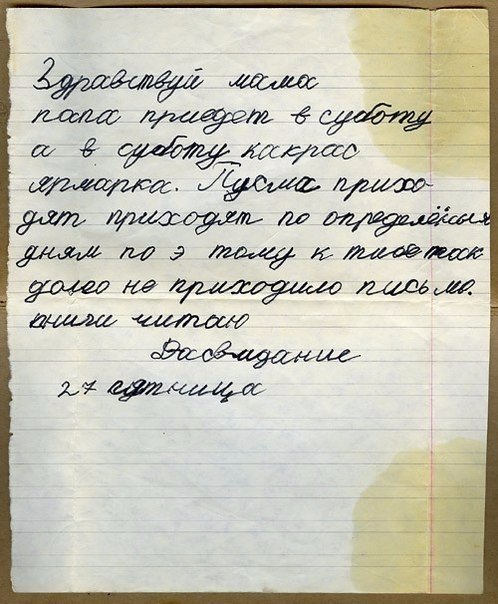 Здравствуй мама
папа приедет в суботу
а в суботу какрас
ярмарка. Пусма прихо-
дят приходят по определёным
дням по э тому к тибе так
долго не приходило письмо.
книги читаю
Дасвидание
27 пятница